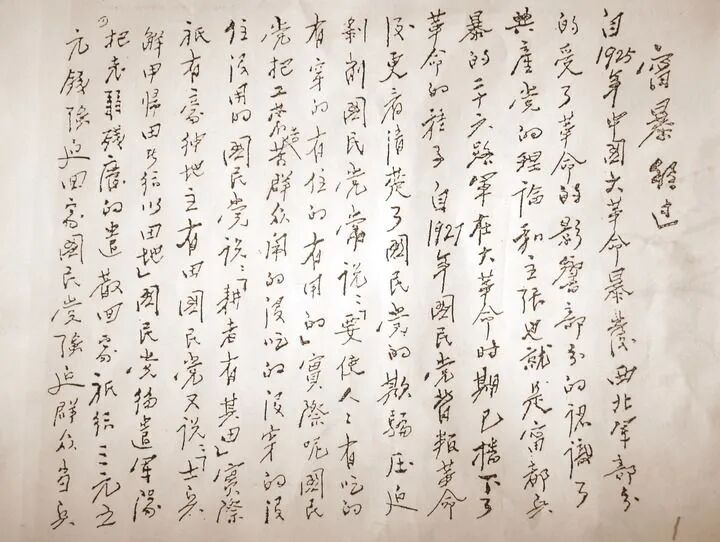 甯暴經过
自1925年中國大革命暴發西北军部分
的受了革命的影響部分的認識了
共產党的理論和主张也就是甯都兵
暴的二十六路军在大革命时期已播下了
革命的種子自1927年國民党背叛革命
後更看清楚了國民党的欺騙压迫
剥削國民党常说：「要使人々有吃的
有穿的有住的有用的」實際呢國民
党把工農劳苦群众闹的没吃的没穿的没
住没用的國民党说：「耕者有其田」實際
祇有豪绅地主有田國民党又说：「士兵
解甲帰田皆给以田地」國民党编遣军隊
把老弱残癈的遣散回家祇给三元五
元錢強迫回家國民党強迫群众当兵